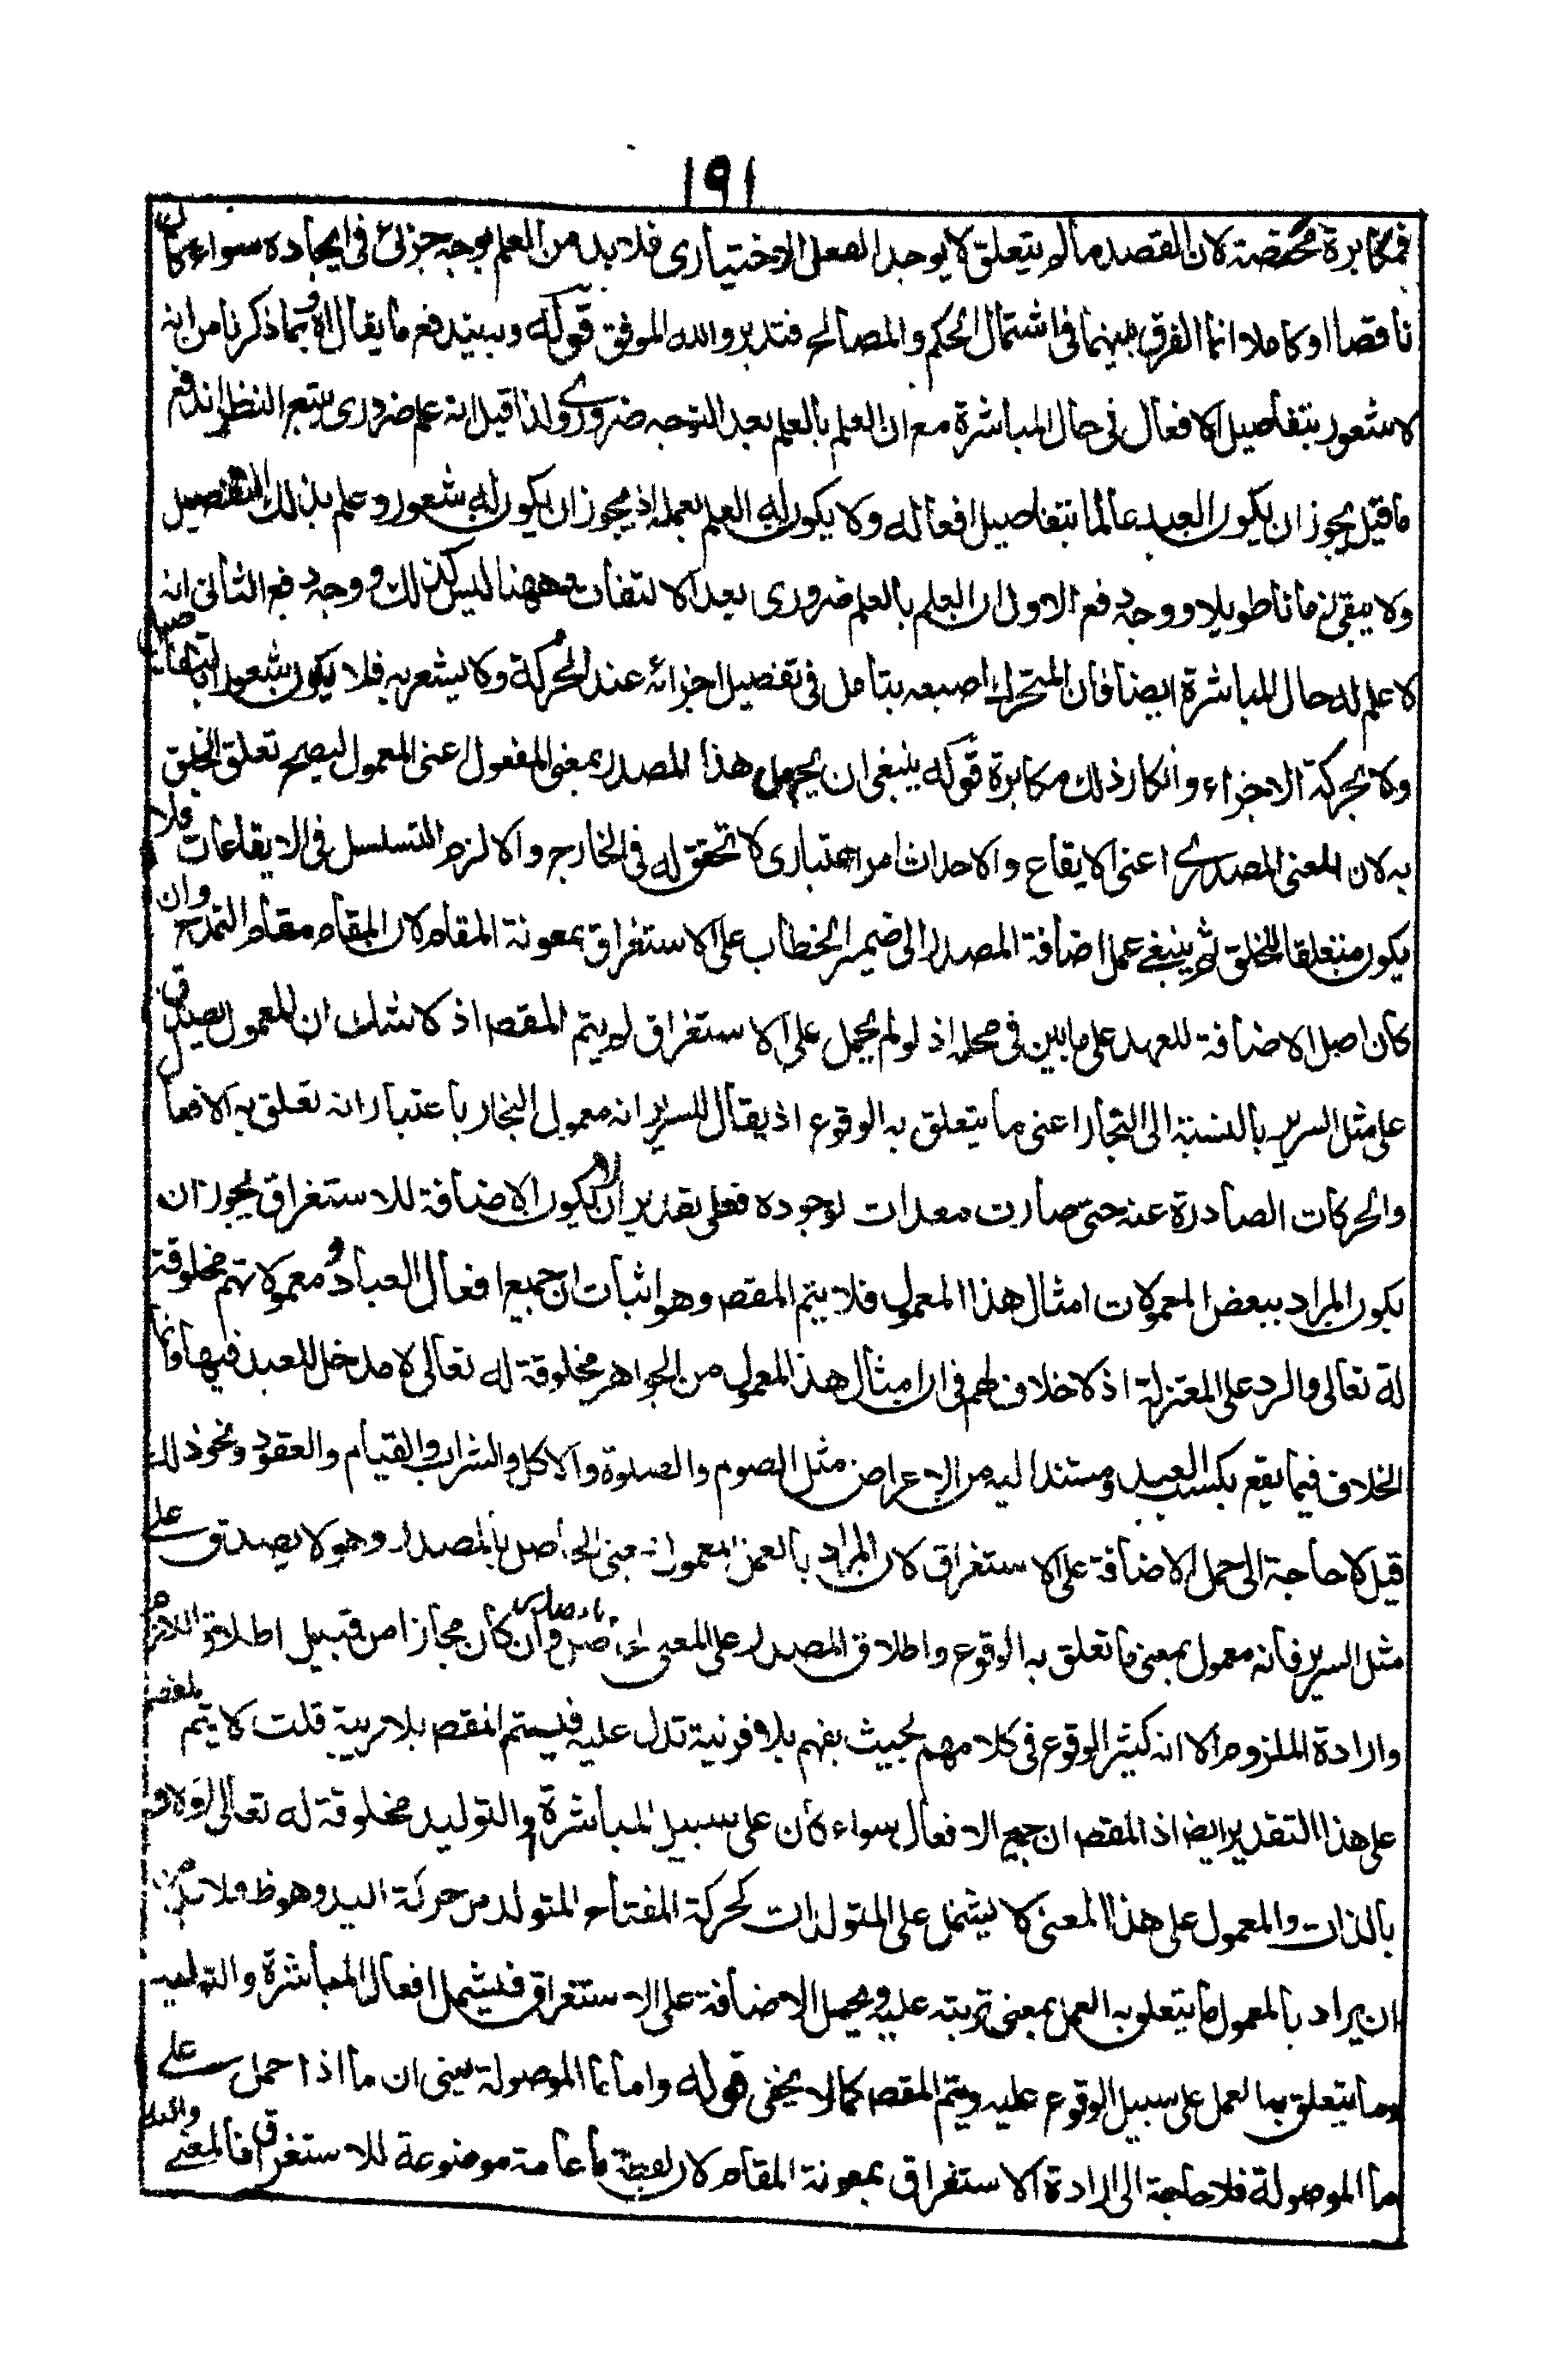 ١٩١
فمكابرة محضة لان القصد مالم يتعلق لا يوجد الفعل الاختياري فلا بد من العلم بوجه جزئي في ايجاده سواء كان
ناقصا او كاملا وانما الفرق بينهما في اشتمال الحكم والمصالح فتدبر والله الموفق قوله وبه يندفع ما يقال اه وبما ذكرنا من انه
لا شعور بتفاصيل الافعال في حال المباشرة مع ان العلم بالعلم بعد التوجه ضروري ولذا قيل انه علم ضروري يتبع النظر اندفع
ما قيل يجوز ان يكون العبد عالما بتفاصيل افعاله ولا يكون له العلم بعلمه اذ يجوز ان يكون له شعور وعلم بذلك التفصيل
ولا يبقى زمانا طويلا ووجه دفع الاول ان العلم بالعلم ضروري بعد الالتفات وههنا ليس كذلك ووجه دفع الثاني انه
لا علم له حال المباشرة ايضا فان المتحرك اصبعه يتامل في تفصيل اجزائه عند الحركة ولا يشعر به فلا يكون شعور ابتفاصيل
ولا بحركة الاجزاء وانكار ذلك مكابرة قوله ينبغي ان يحمل هذا المصدر بمعنى المفعول اعنى المعمول ليصح تعلق الخلق
به لان المعنى المصدري اعنى الايقاع والاحداث امر اعتباري لا تحقق له في الخارج والا لزم التسلسل في الايقاعات فلا
يكون متعلقا للخلق ثم ينبغي عمل اضافة المصدر الى ضمير الخطاب على الاستغراق بمعونة المقام لان المقام مقام التمدح وان
كان اصل الاضافة للعهد على ما بين في محله اذ لو لم يحمل على الاستغراق لم يتم المقصد اذ لا شك ان المعمول يصدق
على مثل السرير بالنسبة الى النجار اعنى ما يتعلق به الوقوع اذ يقال للسرير انه معمول النجار باعتبار انه تعلق به الافعال
والحركات الصادرة عنه حتى صارت معدات لوجوده فعلى تقدير ان لا يكون الاضافة للاستغراق يجوز ان
يكون المراد ببعض المعمولات امثال هذا المعمول فلا يتم المقصد وهو اثبات ان جميع افعال العباد ومعمولاتهم مخلوقة
له تعالى والرد على المعتزلة اذ لا خلاف لهم في ان امثال هذا المعمول من الجواهر مخلوقة له تعالى لا مدخل للعبد فيها وانما
الخلاف فيما يقع بكسب العبد ومستندا اليه من الاعراض مثل الصوم والصلوة والاكل والشراب والقيام والعقود ونحو ذلك
قيل لا حاجة الى حمل الاضافة على الاستغراق لان المراد بالعمل المعمول بمعنى الحاصل بالمصدر وهو لا يصدق على
مثل السرير فانه معمول بمعنى ما تعلق به الوقوع واطلاق المصدر على المعنى الحاصل بالمصدر وان كان مجازا من قبيل اطلاق اللازم
وارادة الملزوم الا انه كثير الوقوع في كلامهم بحيث يفهم بلا قرنية تدل عليه فيستم المقصد بلا مريبة قلت لا يتم المقصد
على هذا التقدير ايضا اذ المقصد ان جميع الافعال سواء كان على سبيل المباشرة والتوليد مخلوقة له تعالى اولا و
بالذات والمعمول على هذا المعنى لا يشتمل على المتولدات كحركة المفتاح المتولد من حركة اليد وهو ظ فلا بد من
ان يراد بالمعمول ما يتعلق به العمل بمعنى ترتبه عليه ويحمل الاضافة على الاستغراق فيشمل افعال المباشرة والتوليد
وما يتعلق به العمل على سبيل الوقوع عليه ويتم المقصد كما لا يخفى قوله واما ما الموصولة يعنى ان ما اذا حمل على
ما الموصولة فلا حاجة الى ارادة الاستغراق بمعونة المقام لان لفظة ما عامة موضوعة للاستغراق فالمعنى والله